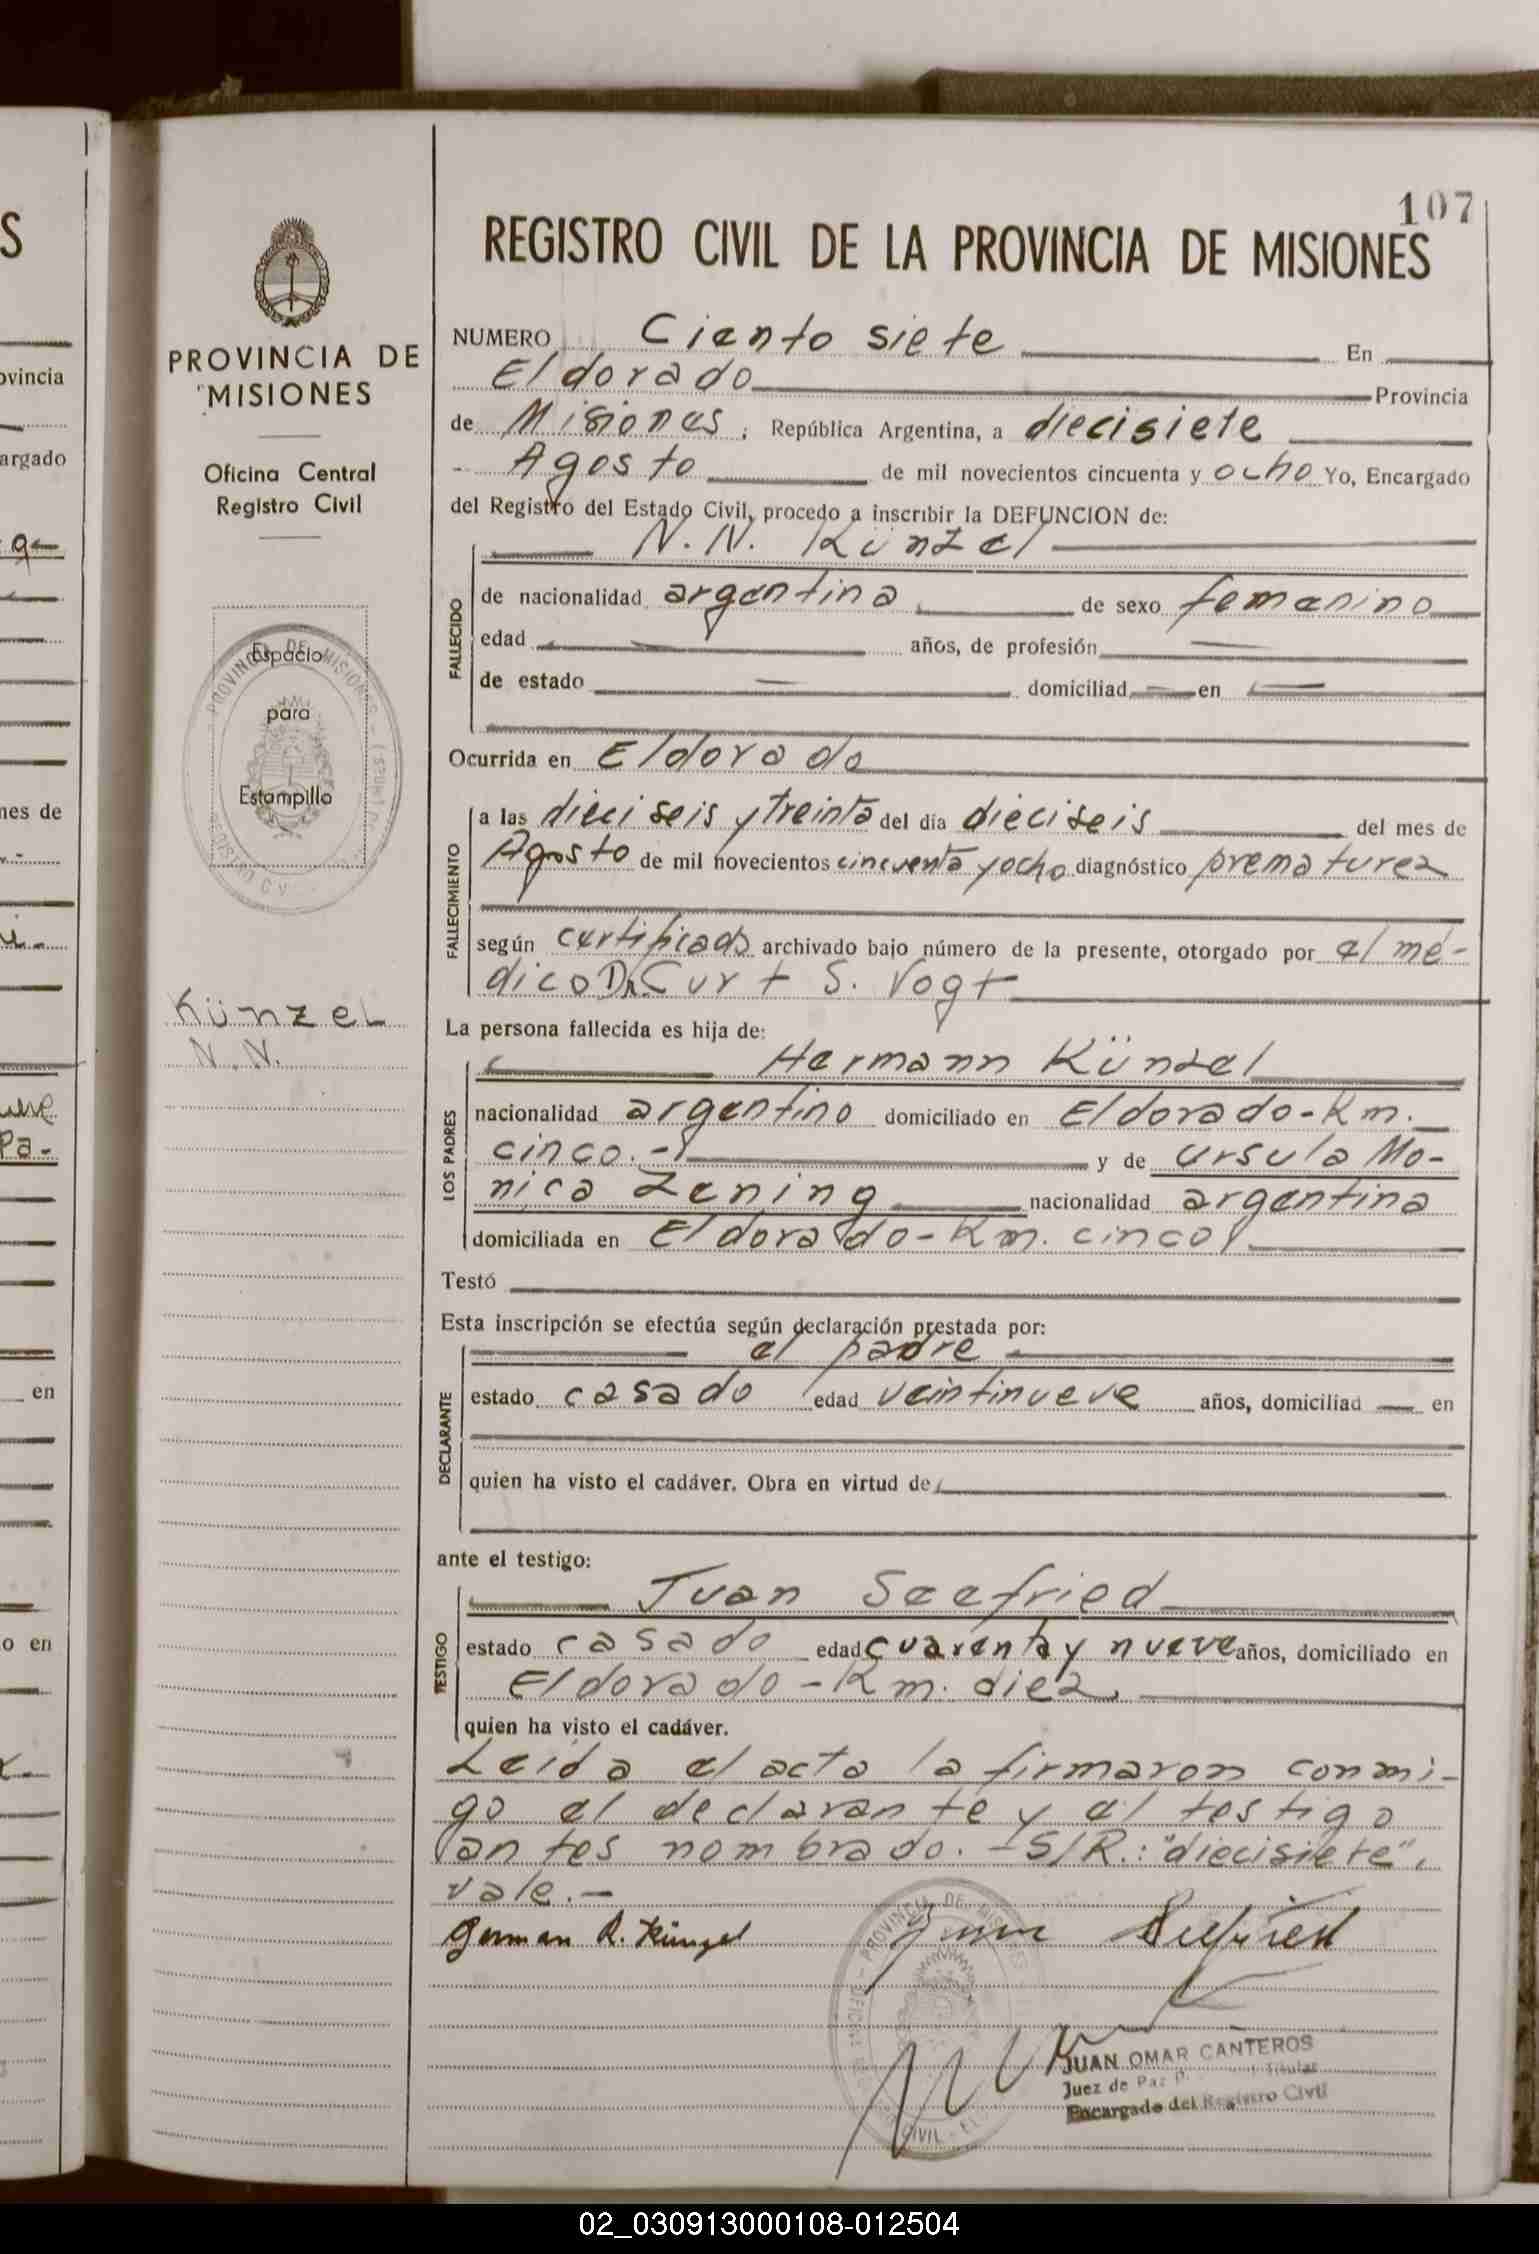 107
REGISTRO CIVIL DE LA PROVINCIA DE MISIONES
PROVINCIA DE
MISIONES
Oficina Central
Registro Civil
Espacio
para
Estampilla
Künzel
N.N.
NUMERO Ciento siete En
Eldorado Provincia
de Misiones, República Argentina, a diecisiete
Agosto de mil novecientos cincuenta y ocho Yo, Encargado
del Registro del Estado Civil, procedo a inscribir la DEFUNCION de:
N.N. Künzel
FALLECIDO
de nacionalidad argentina de sexo femenino
edad años, de profesión
de estado domiciliad en
Ocurrida en Eldorado
FALLECIMIENTO
a las dieciseis y treinta del día dieciseis del mes de
Agosto de mil novecientos cincuenta y ocho diagnóstico prematurez
según certificado archivado bajo número de la presente, otorgado por el mé-
dico Dr. Curt S. Vogt
La persona fallecida es hija de:
LOS PADRES
Hermann Künzel
nacionalidad argentino domiciliado en Eldorado-Km.
cinco.- y de Ursula Mo-
nica Zening nacionalidad argentina
domiciliada en Eldorado-Km. cinco
Testó
Esta inscripción se efectúa según declaración prestada por:
DECLARANTE
el padre
estado casado edad veintinueve años, domiciliad en
quien ha visto el cadáver. Obra en virtud de
ante el testigo:
TESTIGO
Juan Seefried
estado casado edad cuarenta y nueve años, domiciliado en
Eldorado-Km. diez.
quien ha visto el cadáver.
Leida el acta la firmaron conmi-
go el declarante y el testigo
antes nombrado.-S/R.:"diecisiete",
vale.-
German R. Künzel Juan Seefried
JUAN OMAR CANTEROS
Juez de Paz Titular
Encargado del Registro Civil
02_030913000108-012504